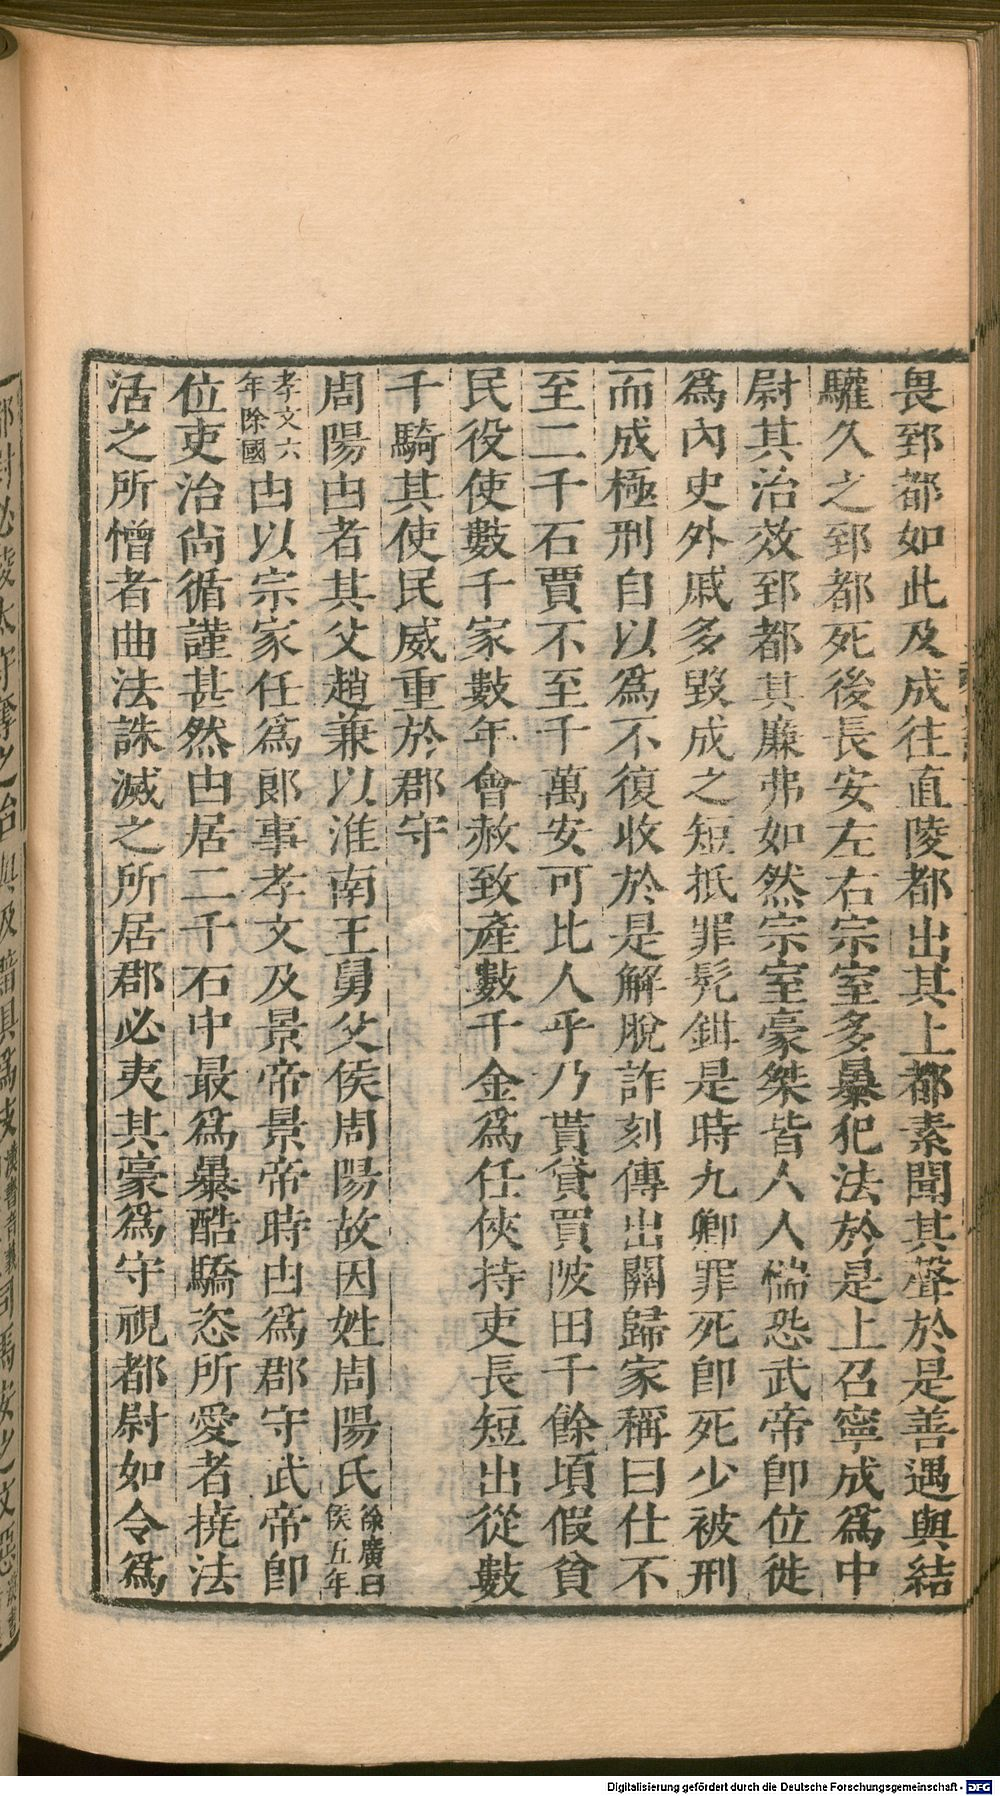 畏郅都如此及成往直陵都出其上都素聞其聲於是善遇與結
驩久之郅都死後長安左右宗室多㬥犯法於是上召寧成爲中
尉其治效郅都其廉弗如然宗室豪桀皆人人惴恐武帝卽位徙
爲內史外戚多毀成之短抵罪髡鉗是時九卿罪死卽死少被刑
而成極刑自以爲不復收於是解脫詐刻傳出關歸家稱曰仕不
至二千石賈不至千萬安可比人乎乃貰貸買陂田千餘頃假貧
民役使數千家數年會赦致產數千金爲任俠持吏長短出從數
千騎其使民威重於郡守
周陽由者其父趙兼以淮南王舅父侯周陽故因姓周陽氏徐廣曰侯五年
孝文六年除國由以宗家任爲郎事孝文及景帝景帝時由爲郡守武帝卽
位吏治尚循謹甚然由居二千石中最爲㬥酷驕恣所愛者撓法
活之所憎者曲法誅滅之所居郡必夷其豪爲守視都尉如令爲
Digitalisierung gefördert durch die Deutsche Forschungsgemeinschaft - DFG